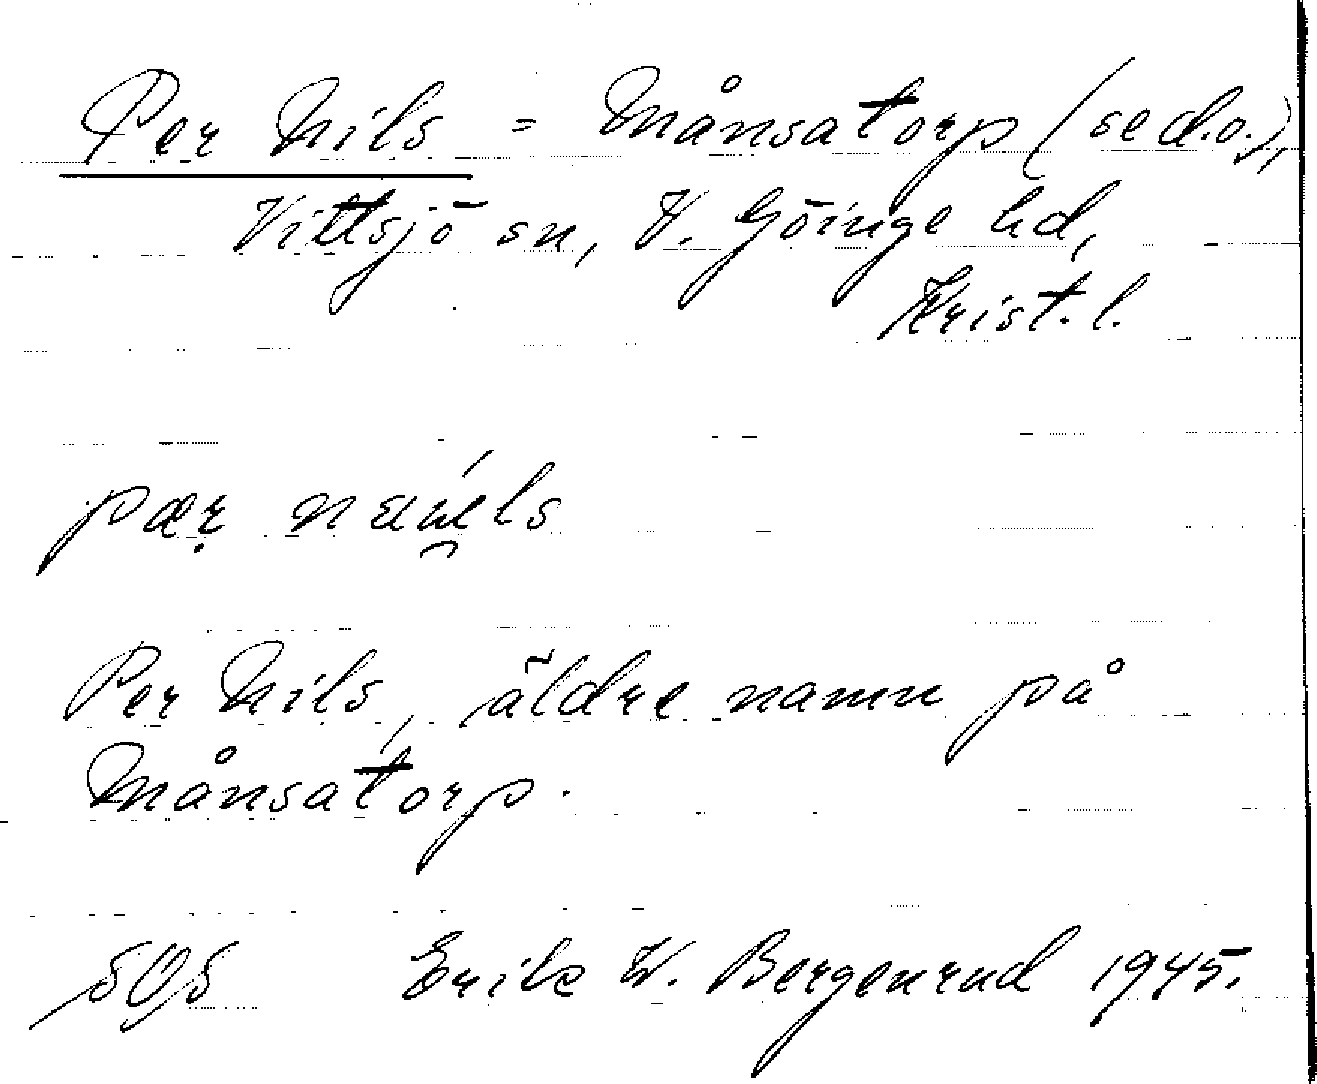 Per Nils = Månsatorp (se d.o.),
Vittsjö sn, V. Göinge hd,
Krist. l.
pær
Per Nils, äldre namn på
Månsatorp.
SOS Erik W. Bergenrud 1945.